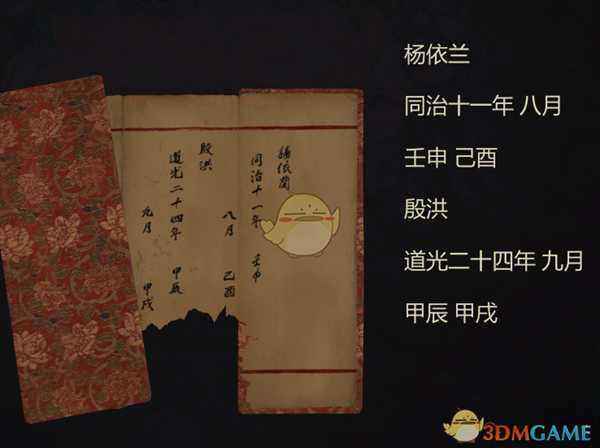 楊依蘭
同治十一年 壬申
八月 己酉
殷洪
道光二十四年 甲辰
九月 甲戌
杨依兰
同治十一年 八月
壬申 己酉
殷洪
道光二十四年 九月
甲辰 甲戌
3DMGAME